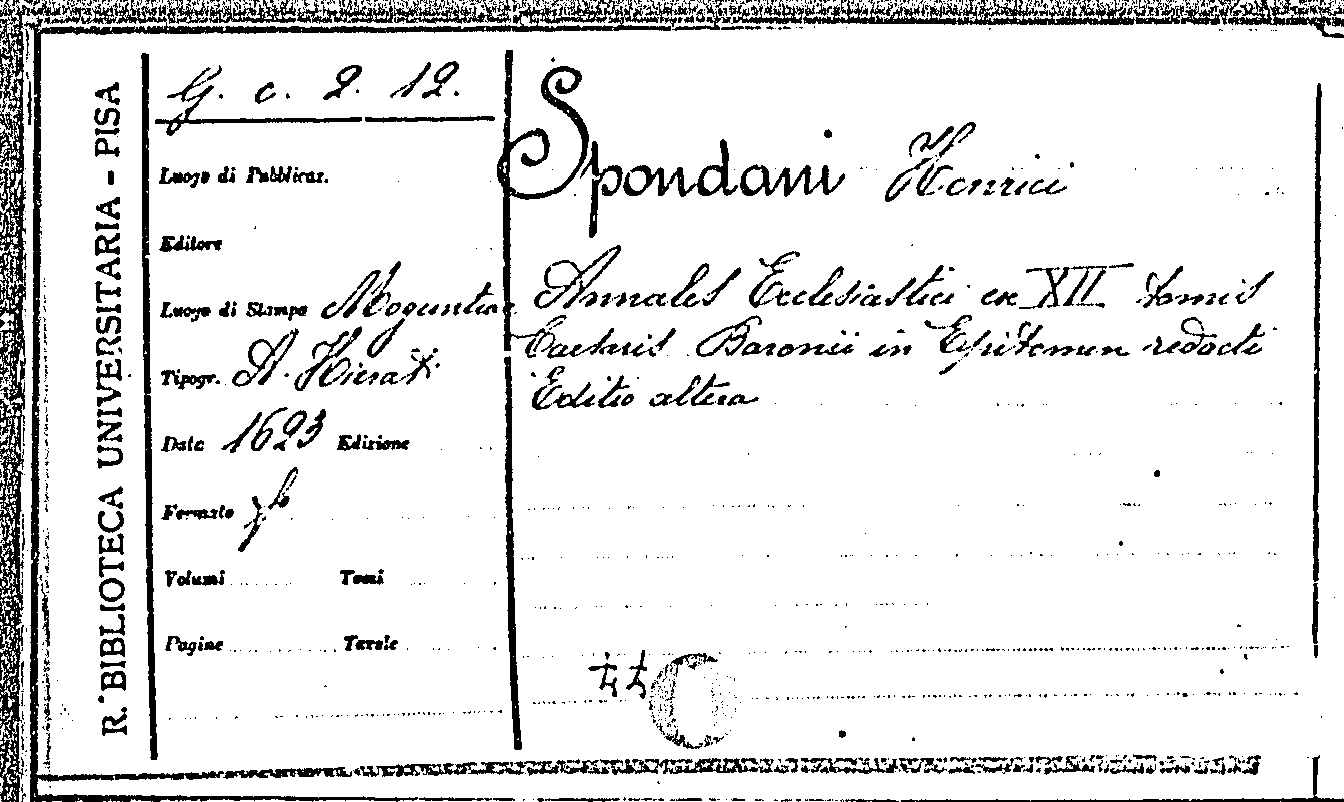 R. BIBLIOTECA UNIVERSITARIA - PISA
G. c. 2. 12.
Luogo di Pubblicaz.
Editore
Luogo di Stampa Moguntiae
Tipogr. A. Hierat
Data 1623 Edizione
Formato fo
Volumi Tomi
Pagine Tavole
Spondani Henrici
Annales Ecclesiastici ex XII tomis
Caesaris Baronii in Epitomen redacti
Editio altera